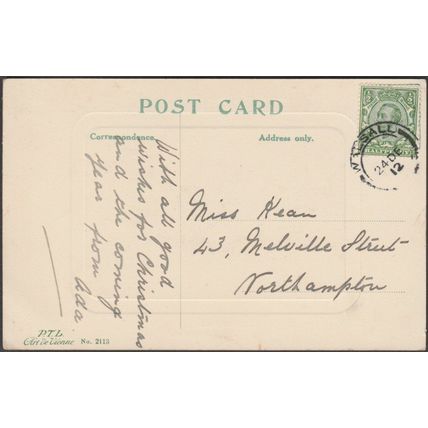 POST CARD
Correspondence.
Address only.
With all good
wishes for Christmas
and the coming
year from Ada
Miss Kean
43, Melville Street
Northampton
24 DE
12
P.T.L.
Art de Vienne No. 2113